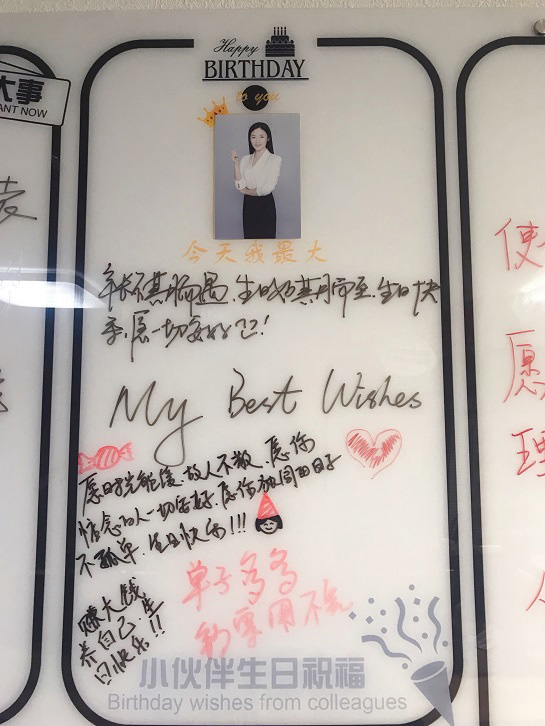 大事
ANT NOW
Happy
BIRTHDAY
to you
今天我最大
生日快
乐,愿一切安好
My Best Wishes
愿时光能缓,故人不散,愿你
惦念的人一切安好,愿你独闯的日子
不孤单,生日快乐!!!
单子多多
赚大钱
养自己生
日快乐!!
小伙伴生日祝福
Birthday wishes from colleagues
使
愿
理